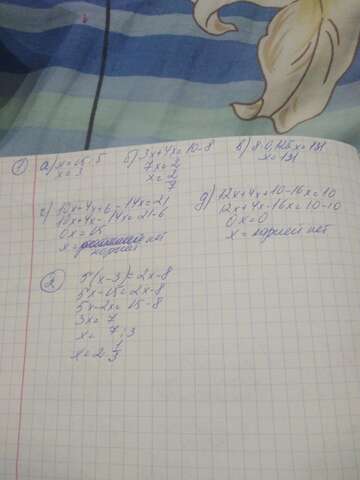 1) а) x = 15 : 5
x = 3
б) 3x + 4x = 10 - 8
7x = 2
x = 2/7
в) 8 · 0,125x = 131
x = 131
г) 10x + 4x + 6 - 14x = 21
10x + 4x - 14x = 21 - 6
0x = 15
x = корней нет
д) 12x + 4x + 10 - 16x = 10
12x + 4x - 16x = 10 - 10
0x = 0
x = корней нет
2) 5(x - 3) = 2x - 8
5x - 15 = 2x - 8
5x - 2x = 15 - 8
3x = 7
x = 7 : 3
x = 2 1/3